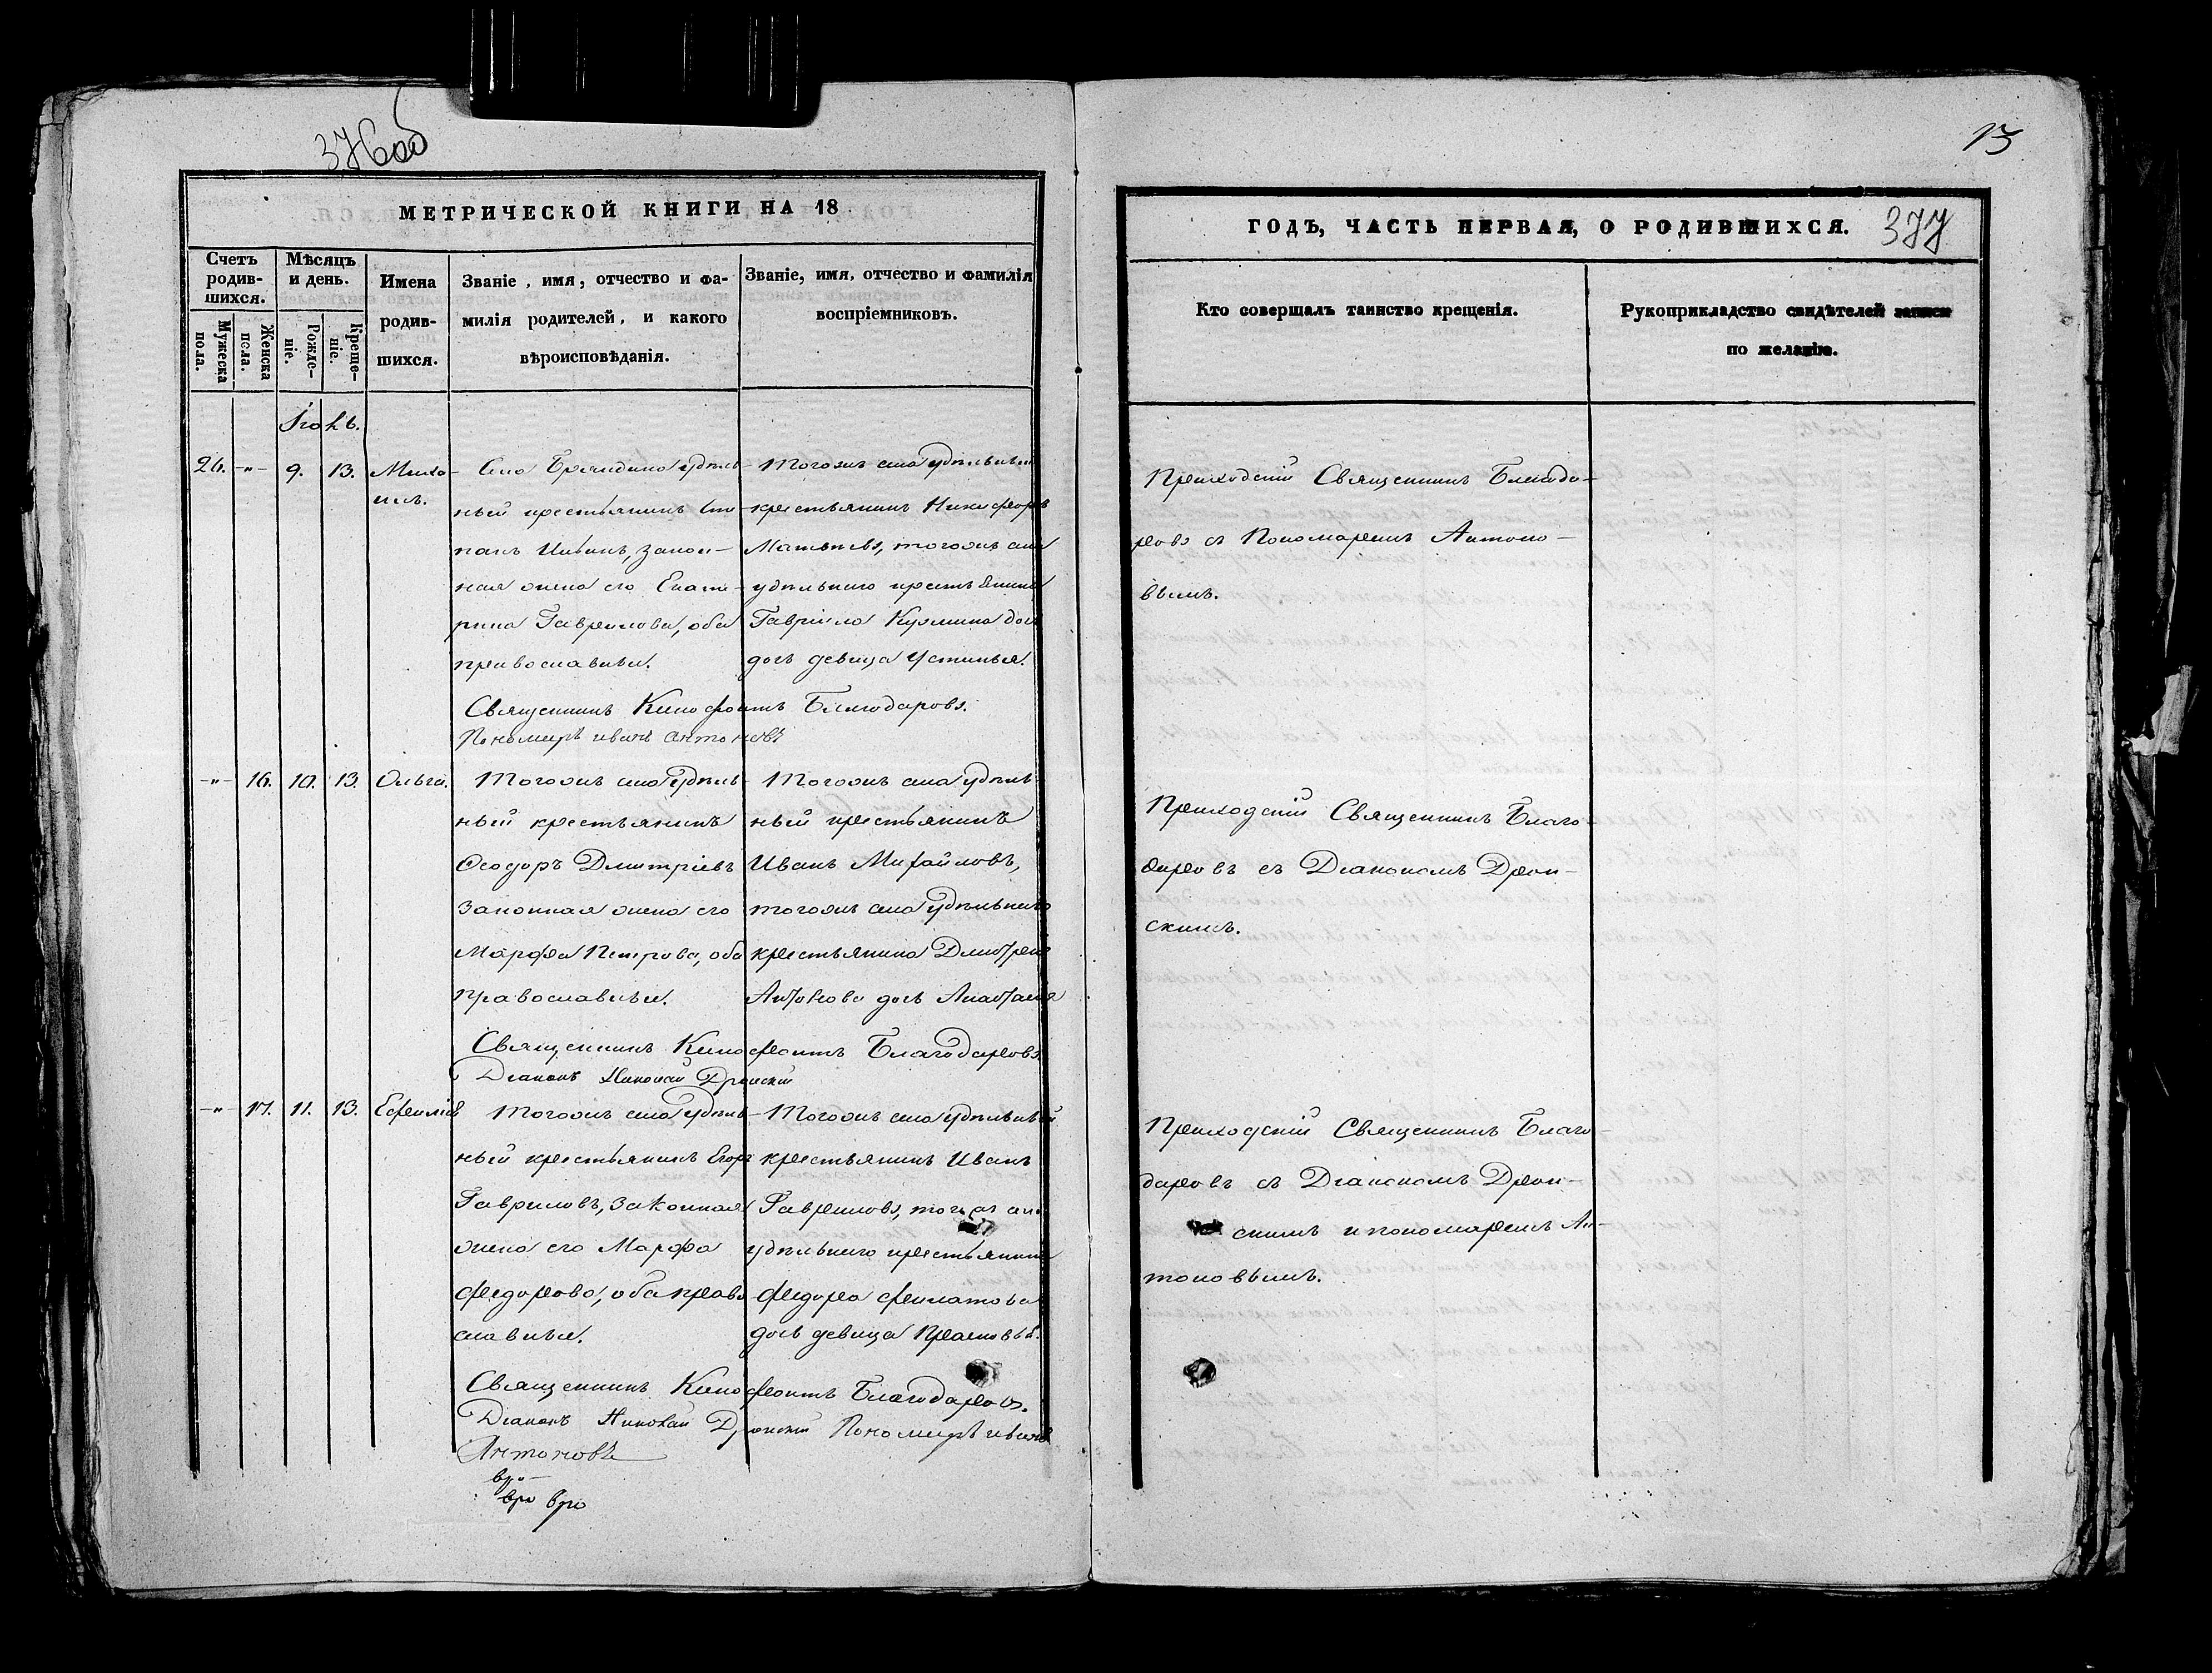 376 об
МЕТРИЧЕСКОЙ КНИГИ НА 18
Счетъ родив-шихся.
Мужеска пола.
Женска пола.
Мѣсяцъ и день.
Рожде-ніе.
Креще-ніе.
Имена родив-шихся.
Званіе, имя, отчество и фа-
милія родителей, и какого
вѣроисповѣданія.
Званіе, имя, отчество и фамилія
воспріемниковъ.
26. -"- 9. 13. Миха-
илъ.
Села Бряндина удѣль-
ный крестьянинъ Сте-
панъ Ивановъ, закон-
ная жена его Екате-
рина Гаврилова, оба
православные.
Тогожъ села удѣльный
крестьянинъ Никифоръ
Матвѣевъ, тогожъ села
удѣльнаго крестьянина
Гавріила Кузмина
дочь девица Устинья.
Священникъ Ксенофонтъ Благодаровъ.
Пономарь Иванъ Антоновъ
-"- 16. 10. 13. Ольга.
Тогожъ села удѣль-
ный крестьянинъ
Ѳеодоръ Дмитріевъ
Законная жена его
Марфа Петрова, оба
православные.
Тогожъ села удѣль-
ный крестьянинъ
Иванъ Михайловъ,
тогожъ села удѣльнаго
крестьянина Дмитрея
Антонова дочь Анастасія
Священникъ Ксенофонтъ Благодаровъ.
Діаконъ Николай Дронскій
-"- 17. 11. 13. Есфилія
Тогожъ села удѣль-
ный крестьянинъ Егоръ
Гавриловъ, законная
жена его Марфа
Федорова, оба право-
славные.
Тогожъ села удѣльный
крестьянинъ Иванъ
Гавриловъ, тогожъ села
удѣльнаго крестьянина
Федора Филатова
дочь девица Прасковья.
Священникъ Ксенофонтъ Благодаровъ.
Діаконъ Николай Дронскій Пономарь Иванъ
Антоновъ
13
ГОДЪ, ЧАСТЬ ПЕРВАЯ, О РОДИВШИХСЯ.
377
Кто совершалъ таинство крещенія.
Рукоприкладство свидѣтелей записи
по желанію.
Приходскій Священникъ Благода-
ровъ съ Пономаремъ Антоно-
вымъ.
Приходскій Священникъ Благо-
даровъ съ Діакономъ Дрон-
скимъ.
Приходскій Священникъ Благо-
даровъ съ Діакономъ Дрон-
скимъ и пономаремъ Ан-
тоновымъ.